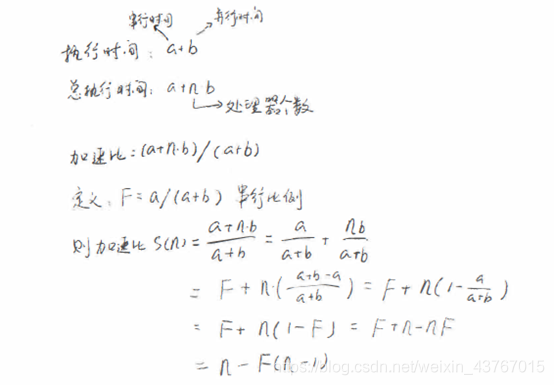 串行时间 并行时间
执行时间: a+b
总执行时间: a+n b
处理器个数
加速比:(a+n·b)/(a+b)
定义: F=a/(a+b) 串行比例
则加速比 S(n)= (a+n·b)/(a+b) = a/(a+b) + nb/(a+b)
= F + n·((a+b-a)/(a+b)) = F + n(1-a/(a+b))
= F + n(1-F) = F+n-nF
= n - F(n-1)
https://blog.csdn.net/weixin_43767015